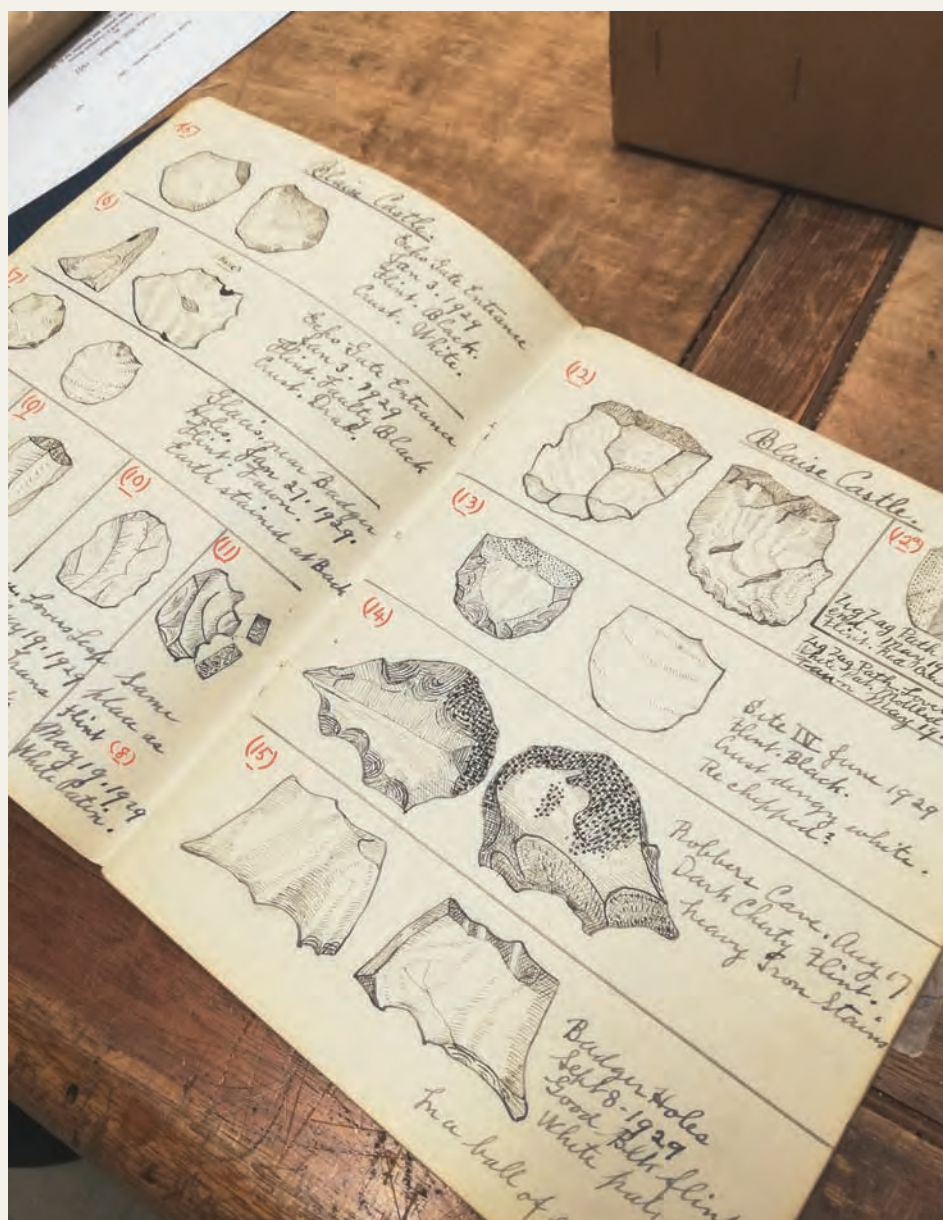 (5)
Blaise Castle.
Expo Gate Entrance
Jan 3. 1929
Flint. Black.
Crust. White.
(6)
Expo Gate Entrance
Jan 3. 1929
Flint. Faulty Black
Crust. Drab.
(7)
near Badger
Holes. Jan 27. 1929.
Flint. Fawn.
Earth stained at Back
(9)
Lovers Leap
May 19. 1929
(10)
(11)
Same
place as
Flint (8)
May 19. 1929
White Patin.
(12)
Blaise Castle.
(12a)
Zig Zag Path
Zig Zag Path.
(13)
Site IV June 1929
Flint. Black.
Crust dingy white.
Re chipped?
(14)
Robbers Cave. Aug 17
Dark Cherty Flint.
heavy Iron Stains
(15)
Badger Holes
Sept 8. 1929
Good Blk flint
White
In a ball of